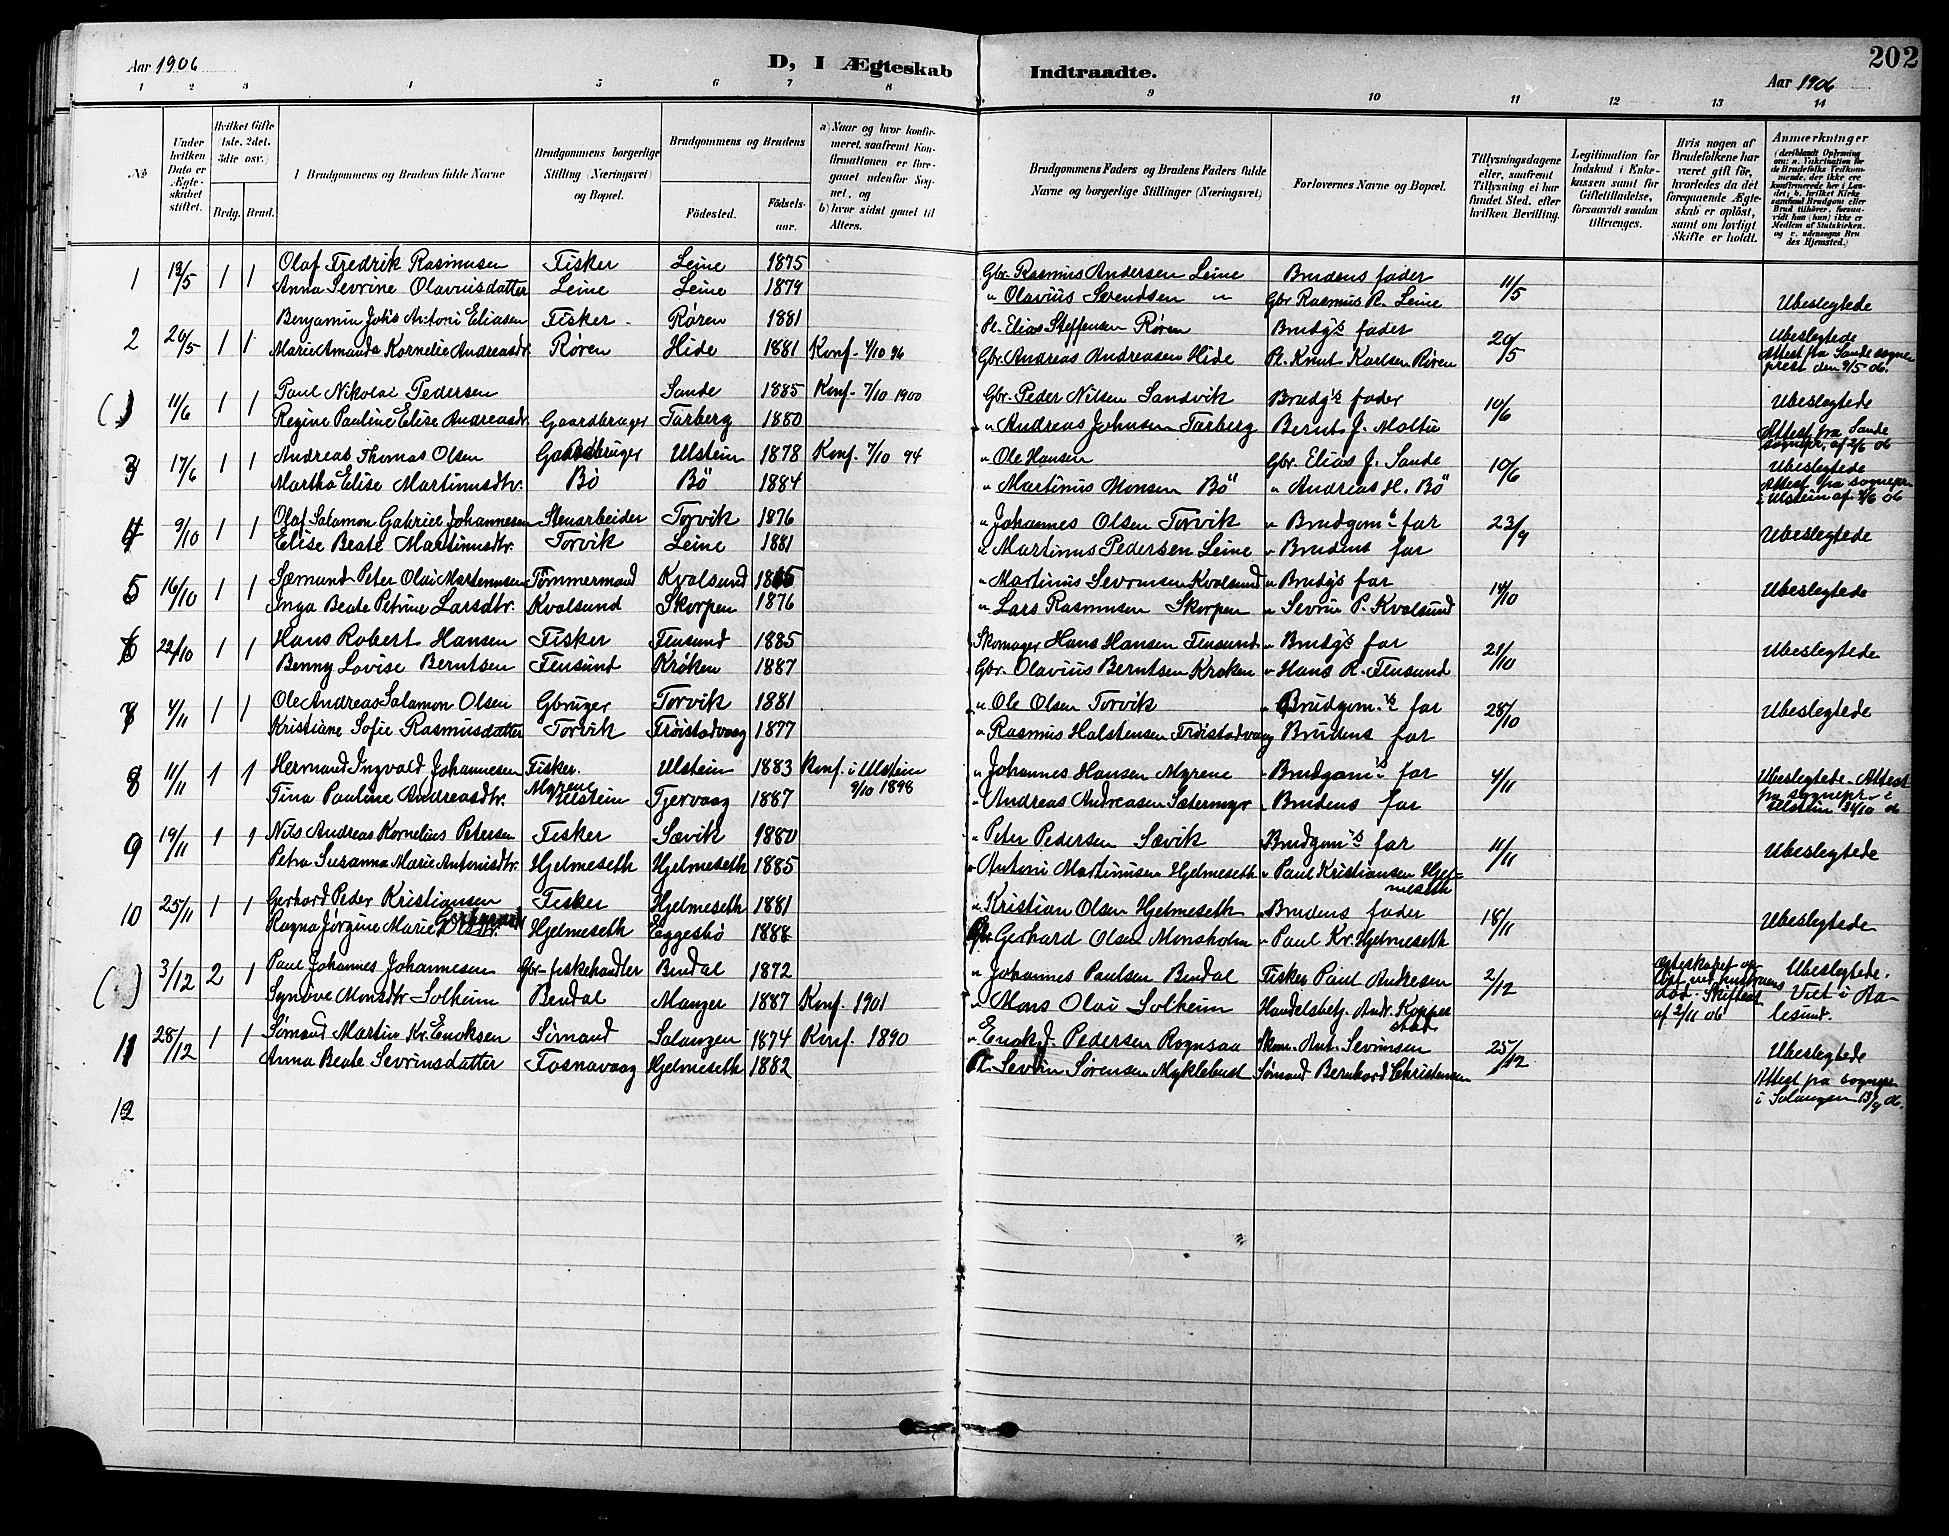 202
Aar 1906
D, I Ægteskab Indtraadte.
Aar 1906
1 2 3 4 5 6 7 8 9 10 11 12 13 14
No
Under hvilken Dato er Ægteskabet stiftet.
Hvilket Gifte (1ste, 2det, 3die osv.)
Brdg. Brud.
Brudgommens og Brudens fulde Navne
Brudgommens borgerlige Stilling (Næringsvei) og Bopæl.
Brudgommens og Brudens
Fødested.
Fødselsaar.
a) Naar og hvor konfirmeret, saafremt Konfirmationen er foregaaet udenfor Sognet, og
b) hvor sidst gaaet til Alters.
Brudgommens Faders og Brudens Faders fulde Navne og borgerlige Stillinger (Næringsvei)
Forlovernes Navne og Bopæl.
Tillysningsdagene eller, saafremt Tillysning ei har fundet Sted, efter hvilken Bevilling.
Legitimation for Indskud i Enkekassen samt for Giftetilladelse, forsaavidt saadan tiltrænges.
Hvis nogen af Brudefolkene har været gift før, hvorledes da det foregaaende Ægteskab er opløst, samt om lovligt Skifte er holdt.
Anmerkninger
(deriblandt Oplysning om: a. Vakcination for de Brudefolks Vedkommende, der ikke ere konfirmerede her i Landet; b. hvilket Kirkesamfund Brudgom eller Brud tilhører, forsaavidt han (hun) ikke er Medlem af Statskirken, og c. udensogns Brudes Hjemsted.)
1 13/5 1 1 Olaf Fredrik Rasmusen Fisker Leine 1875 Gbr. Rasmus Andersen Leine Brudens fader 11/5
Anna Sevrine Olaviusdatter Leine Leine 1879 " Olavius Sevendsen " Gbr Rasmus R. Leine Ubeslegtede
2 20/5 1 1 Benjamin Johs Antoni Eliasen Fisker Røren 1881 Pl. Elias Steffensen Røren Brudg's fader 20/5 Ubeslegtede
Marie Amanda Kornelie Andreasdr. Røren Hide 1881 Konf. 4/10 96 Gbr. Andreas Andreasen Hide Pl. Knut Karlsen Røren Attest fra Sande sogneprest den 9/5 06.
( ) 11/6 1 1 Paul Nikolai Pedersen Sande 1885 Konf. 7/10 1900 Gbr. Peder Nilsen Sandvik Brudg's fader 10/6 Ubeslegtede
Regine Pauline Elise Andreasdr. Gaardbruger Tarberg 1880 " Andreas Johnsen Tarberg Bernt J. Moltu Attest fra Sande sognepr. af 2/6 06
3 17/6 1 1 Andreas Thomas Olsen Gaardbruger Ulstein 1878 Konf. 7/10 94 " Ole Hansen Gbr. Elias J. Sande 10/6 Ubeslegtede
Martha Elise Martinusdtr. Bø Bø 1884 " Martinus Monsen Bø " Andreas H. Bø Attest fra sognepr. i Ulstein af 7/6 06
4 9/10 1 1 Olaf Salamon Gabriel Johannesen Stenarbeider Torvik 1876 " Johannes Olsen Torvik " Brudgom's far 23/9 Ubeslegtede
Elise Beate Martinusdtr. Torvik Leine 1881 " Martinus Pedersen Leine " Brudens far
5 16/10 1 1 Sæmund Peter Olai Martinusen Tømmermand Kvalsund Martinus Sevrinsen Kvalsund " Brudg's far 14/10 Ubeslegtede
Inga Beate Petrine Larsdtr. Kvalsund Skorpen 1876 " Lars Rasmusen Skorpen " Sevrin P. Kvalsund
6 22/10 1 1 Hans Robert Hansen Fisker Flusund 1885 Skomager Hans Hansen Flusund " Brudg's far 21/10 Ubeslegtede
Benny Lovise Berntsen Flusund Krøken 1887 Gbr. Olavius Berntsen Kroken " Hans R. Flusund
7 4/11 1 1 Ole Andreas Salamon Olsen Gbruger Torvik 1881 " Ole Olsen Torvik " Brudgom.'s far 28/10 Ubeslegtede
Kristiane Sofie Rasmusdatter Torvik Frøistadvaag 1877 " Rasmus Halstensen Frøistadvaag Brudens far
8 11/11 1 1 Hermand Ingvald Johannesen Fisker. Ulstein 1883 Konf. i Ulstein 9/10 1898 " Johannes Hansen Myrene " Brudgom's far 4/11 Ubeslegtede - Attest
Tina Pauline Andreasdtr. Myrene Ulstein Tjervaag 1887 " Andreas Andreasen Sætermyr " Brudens far fra sognepr. i Ulstein 31/10 06
9 19/11 1 1 Nils Andreas Kornelius Petersen Fisker Sævik 1880 " Peter Pedersen Sævik Brudgom's far 11/11 Ubeslegtede
Petra Susanna Marie Antonisdtr. Hjelmeseth Hjelmeseth 1885 " Antoni Martinusen Hjelmeseth " Paul Kristiansen Hjelmeseth
10 25/11 1 1 Gerhard Peder Kristiansen Fisker Hjelmeseth 1881 " Kristian Olsen Hjelmeseth " Brudens fader 18/11 Ubeslegtede
Ragna Jørgine Marie Hjelmeseth Eggesbø 1888 Gerhard Olsen Monsholm " Paul Kr. Hjelmeseth
( ) 3/12 2 1 Paul Johannes Johannesen Gbr-fiskehandler Bendal 1872 " Johannes Paulsen Bendal Fisker Paul Andresen 2/12 Ægteskabet opløst ved hustruens død. Skifteatt. af 2/11 06 Ubeslegtede. Viet i Aalesund.
Synøve Monsdtr Solheim Bendal Manger 1887 Konf. 1901 " Mons Olai Solheim Handelsbetj. Andr. Kopperstad
11 28/12 1 1 Sømand Martin Kr. Enoksen Sømand Salangen 1874 Konf. 1890 " Enok Pedersen Rognsaa Skom. Ant. Sevrinsen 25/12 Ubeslegtede
Anna Beate Sevrinsdatter Fosnavaag Hjelmeseth 1882 Pl. Sevrin Sørensen Myklebust Sømand Bernhard Christensen Attest fra sognepr. i Salangen 13/9 06.
12